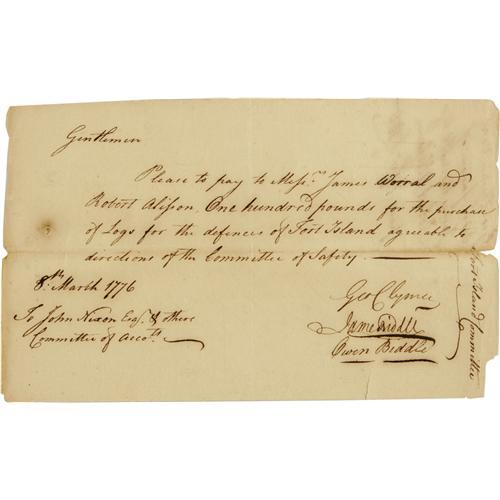 Gentlemen
Please to pay to Messrs. James Worral and
Robert Alison, One hundred pounds for the purchase
of Logs for the defences of Fort Island agreable to
directions of the Committee of Safety.
8th. March 1776
Geo Clymer
To John Nixon Esqr. & others
James Biddle
Committee of Accots.
Owen Biddle
Fort Island Committee